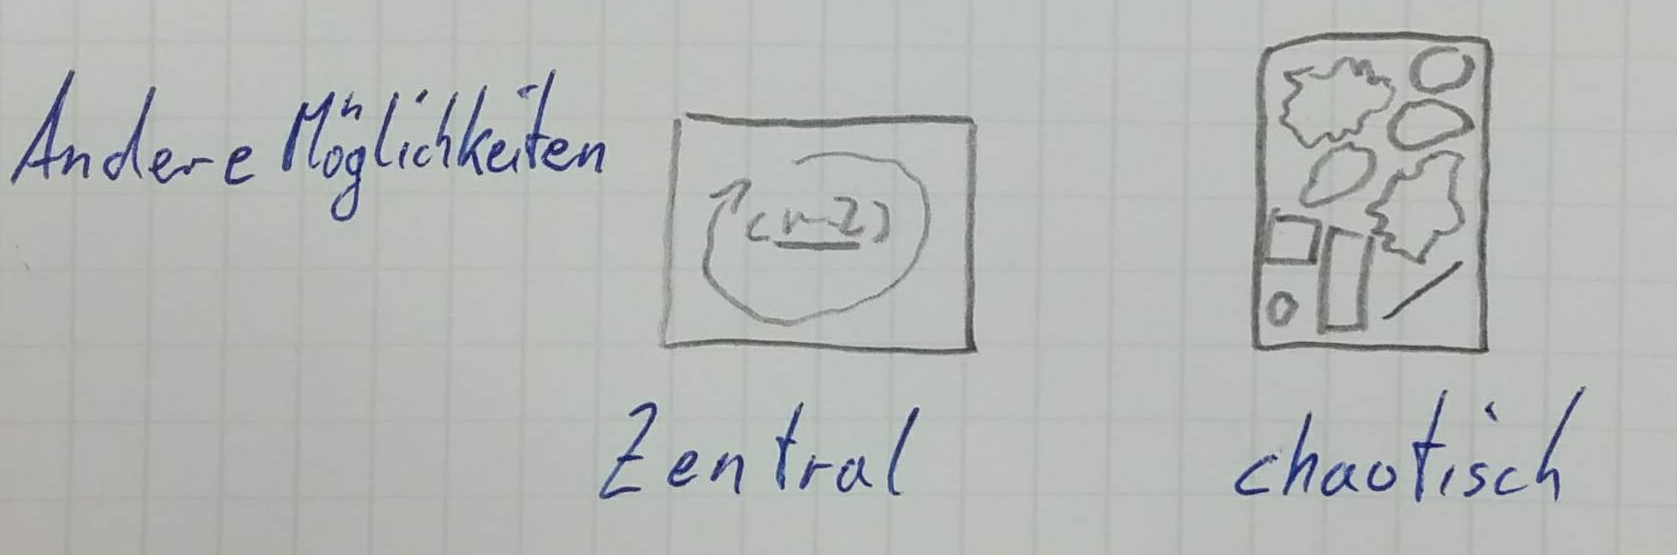 Andere Möglichkeiten
(1-2)
Zentral
chaotisch